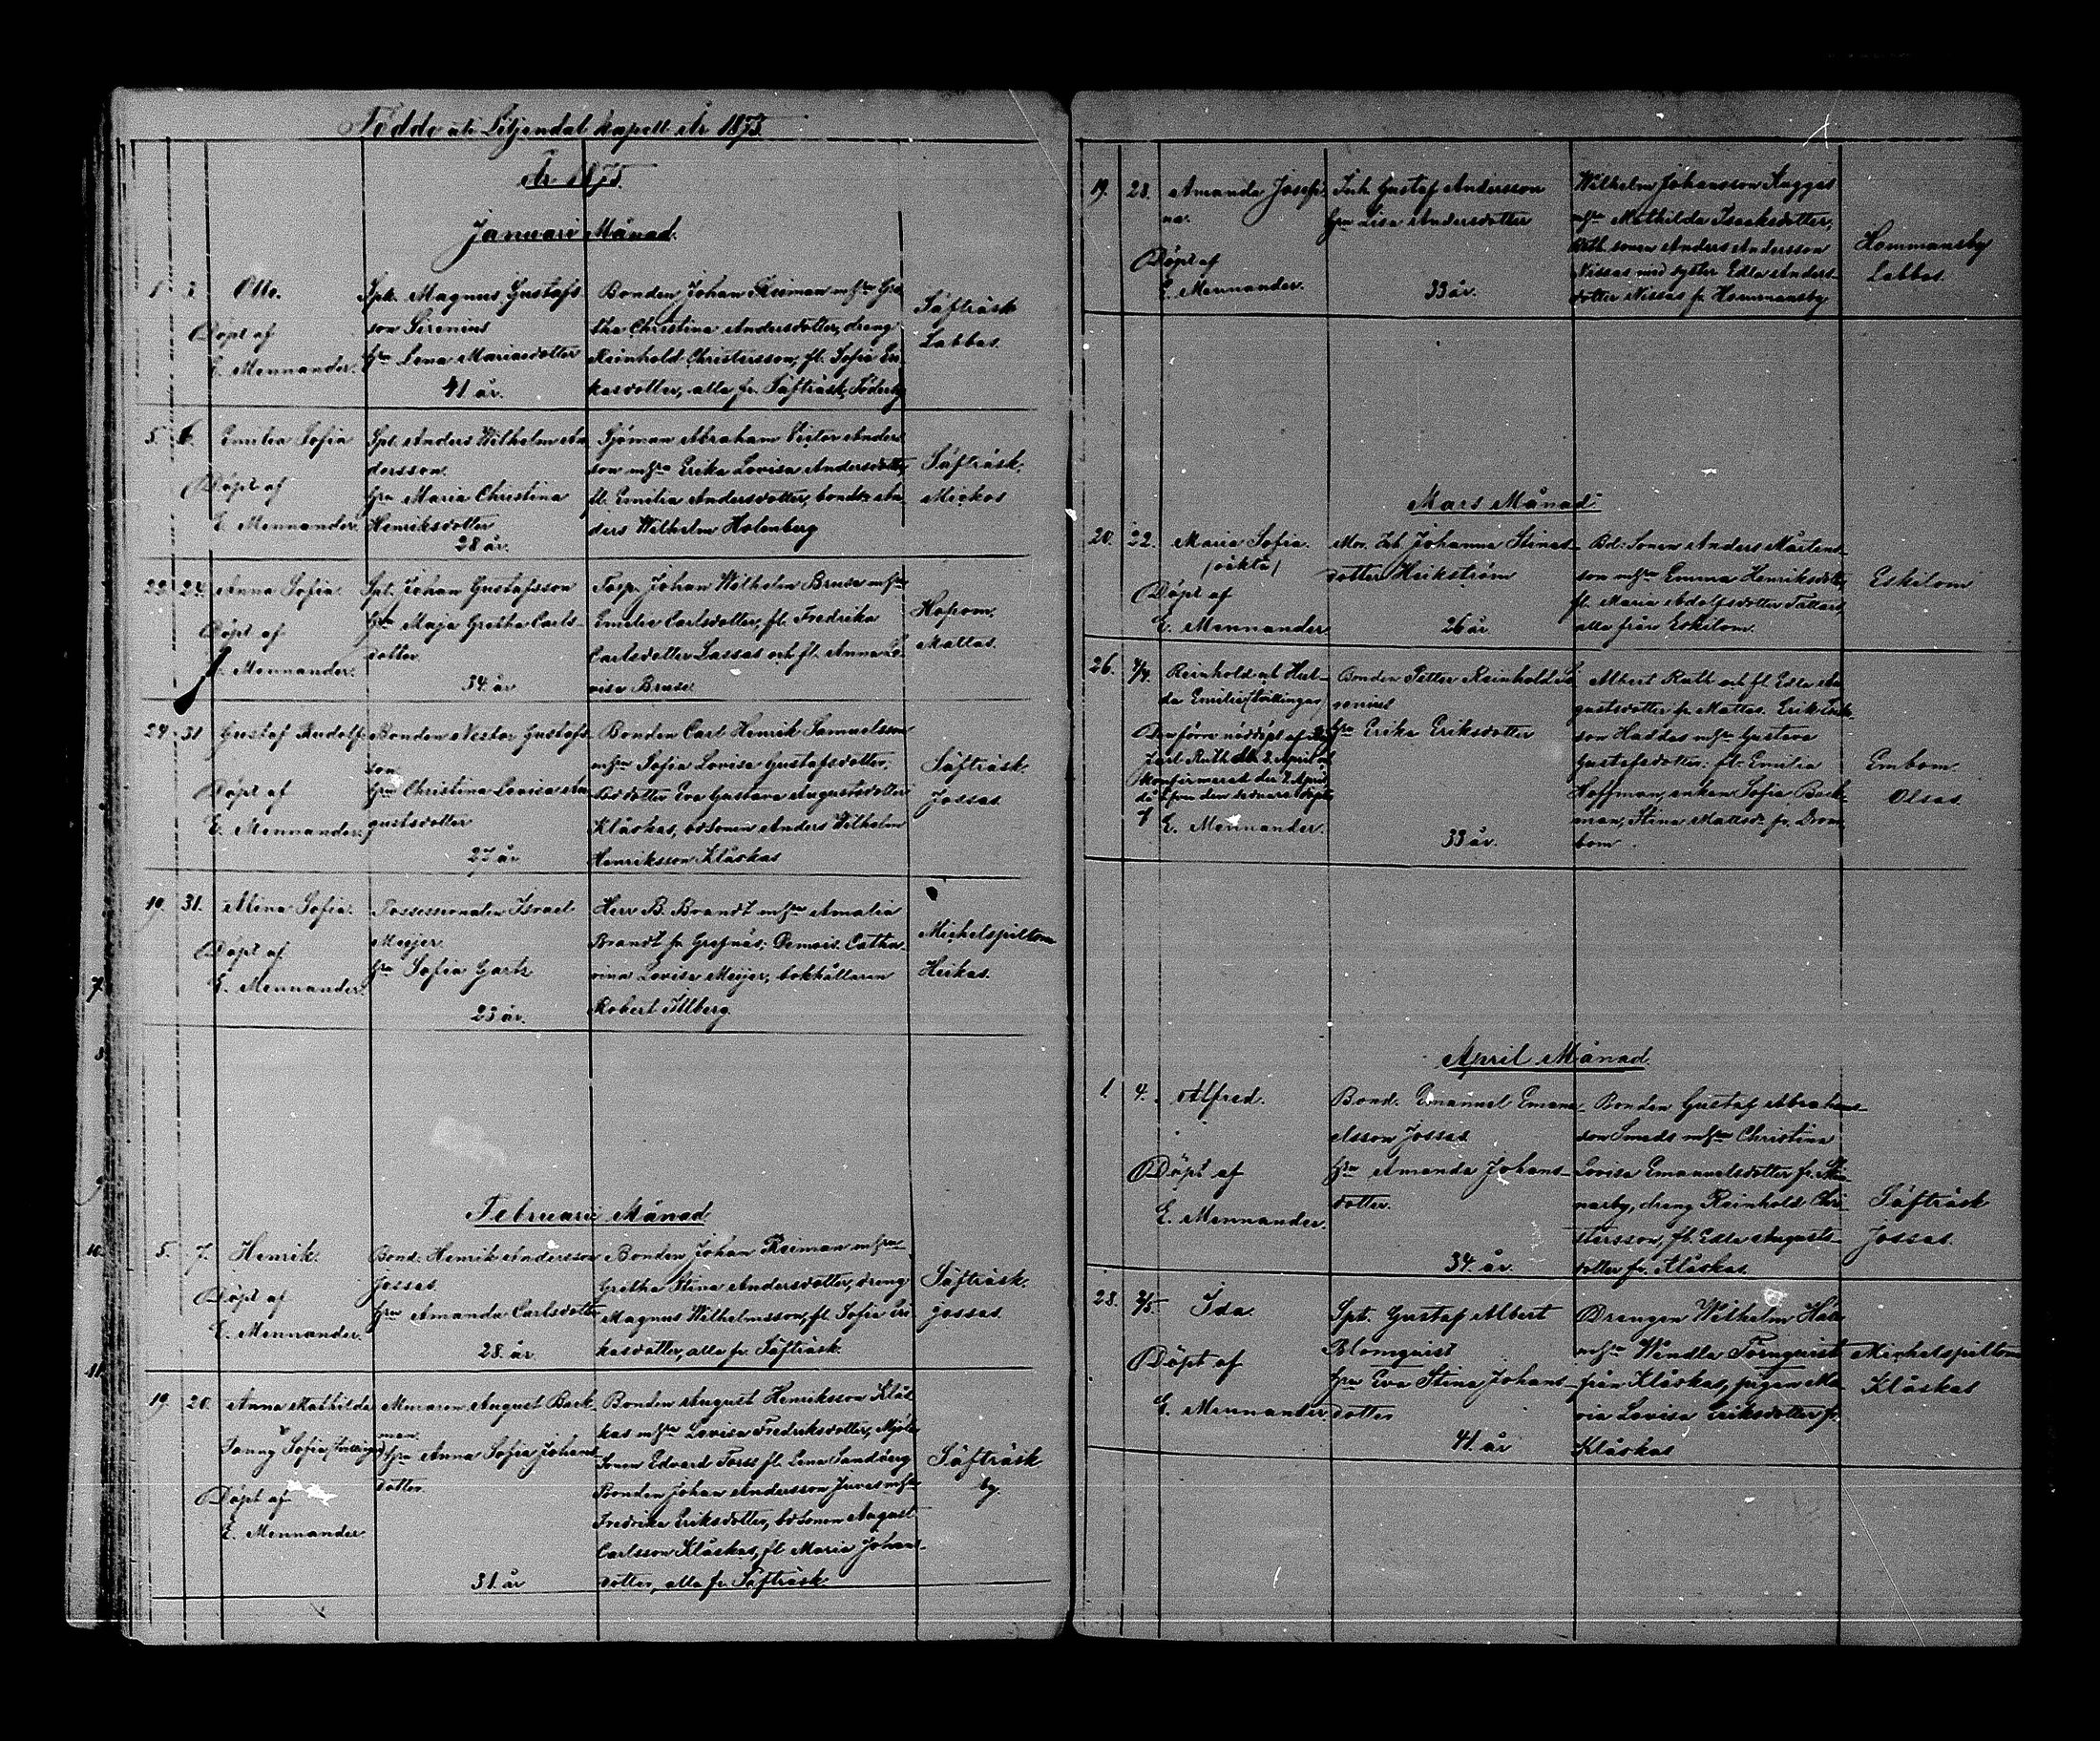 Födde uti Liljendal kapell År 1875.
År 1875.
Januari Månad.
1. 3. Otto.
Döpt af
E. Mennander.
Spt. Magnus Gustafs
son Sirenius
hu Lena Mariaedotter
41 år.
Bonden Johan Reiman m hu Gre
tha Christina Andersdotter, dreng
Reinhold Christersson, fl. Sofia Eri
kasdotter, alla fr. Säfträsk, Söderby
Säfträsk
Labbas.
5. 6. Emilia Sofia
Döpt af
E. Mennander.
Spt. Anders Wilhelm An
dersson.
hu Maria Christina
Henriksdotter
28 år.
Sjöman Abraham Victor Anders
son m hu Erika Lovisa Andersdotter,
fl. Emilia Andersdotter, bonds An
ders Wilhelm Holmberg
Säfträsk.
Mickos
22. 24. Anna Sofia.
Döpt af
E. Mennander.
Spt. Johan Gustafsson
hu Maja Gretha Carls-
dotter.
34 år
Torp. Johan Wilhelm Bruse m hu
Emilie Carlsdotter, fl. Fredrika
Carlsdotter Lassas och fl. Anna Lo-
visa Bruse.
Hopom.
Mattas.
24. 31 Gustaf Rudolf
Döpt af
E. Mennander.
Bonden Nestor Gustafs-
son
hu Christina Lovisa Au-
gustsdotter
27 år
Bonden Carl Henrik Samuelsson
m hu Sofia Lovisa Gustafsdotter,
Bd dotter Eva Gustava Augustsdotter
Klåskas, bd sonen Anders Wilhelm
Henriksson Klåskas
Säfträsk.
Jossas.
19. 31. Alina Sofia.
Döpt af
E. Mennander.
Possessionaten Israel
Meijer.
hu Sofia Gartz
23 år.
Herr B. Brandt m hu Amalia
Brandt fr Grefnäs; Demois. Catha-
rina Lovisa Meijer, bokhållaren
Robert Illberg.
Michelspiltom
Heikas.
Februari Månad
5. 7. Henrik.
Döpt af
E. Mennander.
Bond. Henrik Andersson
Jossas.
hu Amanda Carlsdotter
28. år
Bonden Johan Reiman m hu
Gretha Stina Andersdotter, dreng
Magnus Wilhelmsson, fl. Sofia Eri
kasdotter, alla fr. Säfträsk.
Säfträsk.
jossas.
19. 20. Anna Mathilda
Fanny Sofia (tvillingar)
Döpt af
E. Mennander
Muraren August Back
man.
hu Anna Sofia Johans
dotter.
31. år
Bonden August Henriksson Klås
kas m hu Lovisa Fredriksdotter,
sonen Edvard Torss fl. Lena Sandberg
Bonden Johan Andersson Juvas m hu
Fredrika Eriksdotter, bd sonen August
Carlsson Klåskas, fl Maria Johans-
dotter, alla fr Säfträsk
Säfträsk
by.
19. 28. Amanda Josefi-
na.
Döpt af
E. Mennander.
Inh. Gustaf Andersson
hu Lisa Andersdotter
33 år.
Wilhelm Johansson Knggas
m hu Mathilda Isaaksdotter,
Bdb. sonen Anders Andersson
Nissas med syster Edla Anders-
dotter Nissas fr Hommansby
Hommansby
Labbas.
Mars Månad.
20. 22. Maria Sofia.
/oäkta/
Döpt af
E. Mennander.
Mor. Inh. Johanna Stinas-
dotter Heikström
26 år.
Bd: Sonen Anders Mårtens-
son m hu Emma Henriksdotter,
fl. Maria Adolfsdotter Tallars,
alla från Eskilom.
Eskilom
26. 4/4. Reinhold och Hul-
da Emilia (tvillingar)
Den förre nöddöpt af
Carl Ruth den 2. April och
konfirmerad den 4 April
då äfven den sednare döptes
af E. Mennander.
Bonden Petter Reinhold
hu Erika Eriksdotter
33 år.
Albert Ruth och fl. Edla Au
gustsdotter fr Mattas. Erik Erik-
son Haddas m hu Gustava
Gustafsdotter; fl. Emilia
Hoffman, enkan Sofia Back-
man, Stina Mattsdr. fr. Drom-
bom.
Embom.
Olsas.
April Månad.
1. 4. Alfred.
Döpt af
E. Mennander.
Bond. Emanuel Emanu-
elsson Jossas.
hu Amanda Johans-
dotter.
34. år.
Bonden Gustaf Abrahams-
son Smeds m hu Christina
Lovisa Emanuelsdotter fr. Mi-
narby, dreng Reinhold Chri-
stersson, fl. Edla Augusts-
dotter fr. Klåskas.
Säfträsk
Jossas.
28. 2/5. Ida.
Döpt af
E. Mennander.
Spt. Gustaf Albert
Blomqvist
hu Eva Stina Johans-
dotter
41. år
Drengen Wilhelm
m hu Wendla Törnqvist
från Klåskas, pigan Ma-
ria Lovisa Eriksdotter fr.
Klåskas
Michelspiltom
Klåskas